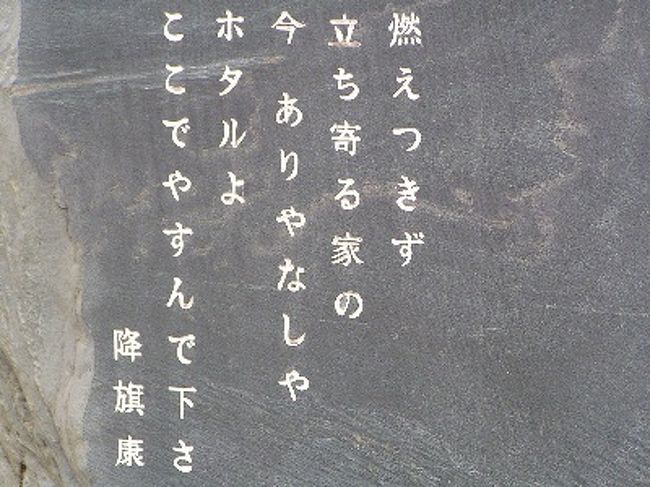 燃えつきず
立ち寄る家の
今 ありやなしや
ホタルよ
ここでやすんで下さ
降旗康